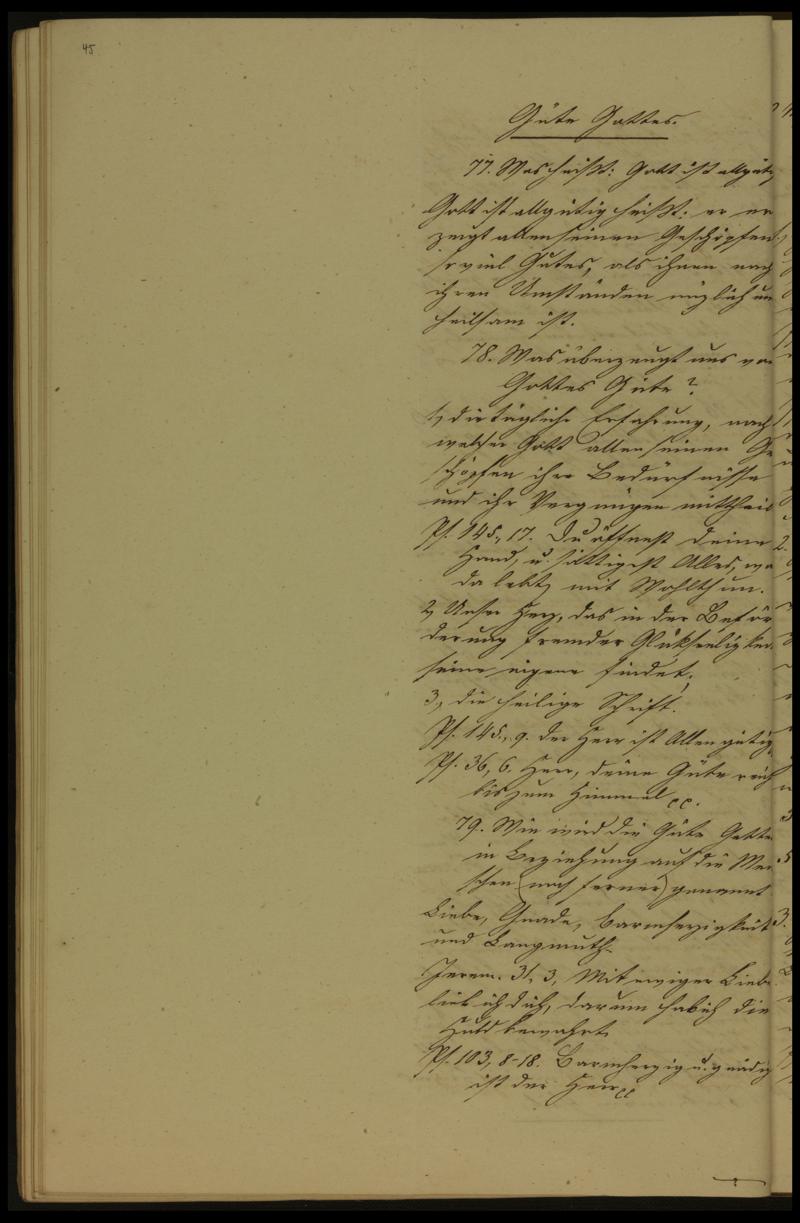 45
Güte Gottes.
77. Was heißt: Gott ist allgütig
Gott ist allgütig heißt: er er
zeugt allen seinen Geschöpfen
so viel Gutes, als ihnen nach
ihren Umständen müzlich un
heilsam ist.
78. Was überzeugt uns von
Gottes Güte?
1, die tägliche Erfahrung, nach
welcher Gott allen seinen Ge
schöpfen ihre Bedürfnisse
und ihr Vergnügen mittheil
Ps. 145, 17. Du öffnest deine
Hand, u. sättigest Alles, wa
da lebt, mit Wohlthun.
2, Unser Herz, das in der Beför
derung fremder Glükseeligkei
seine eigene findet;
3, die heilige Schrift.
Ps. 145, 9. der Herr ist Allen gütig
Ps. 36, 6. Herr, deine Güte reich
bis zum Himmel pp.
79. Wie wird die Güte Gotte
in Beziehung auf die Men
schen (noch ferner) genannt
Liebe, Gnade, Barmherzigkeit
und Langmuth.
Jerem. 31, 3, Mit ewiger Liebe
lieb ich dich, darum hab ich die
Huld bewahrt
Ps. 103, 8-18. Barmherzig u. gnädig
ist der Herr pp